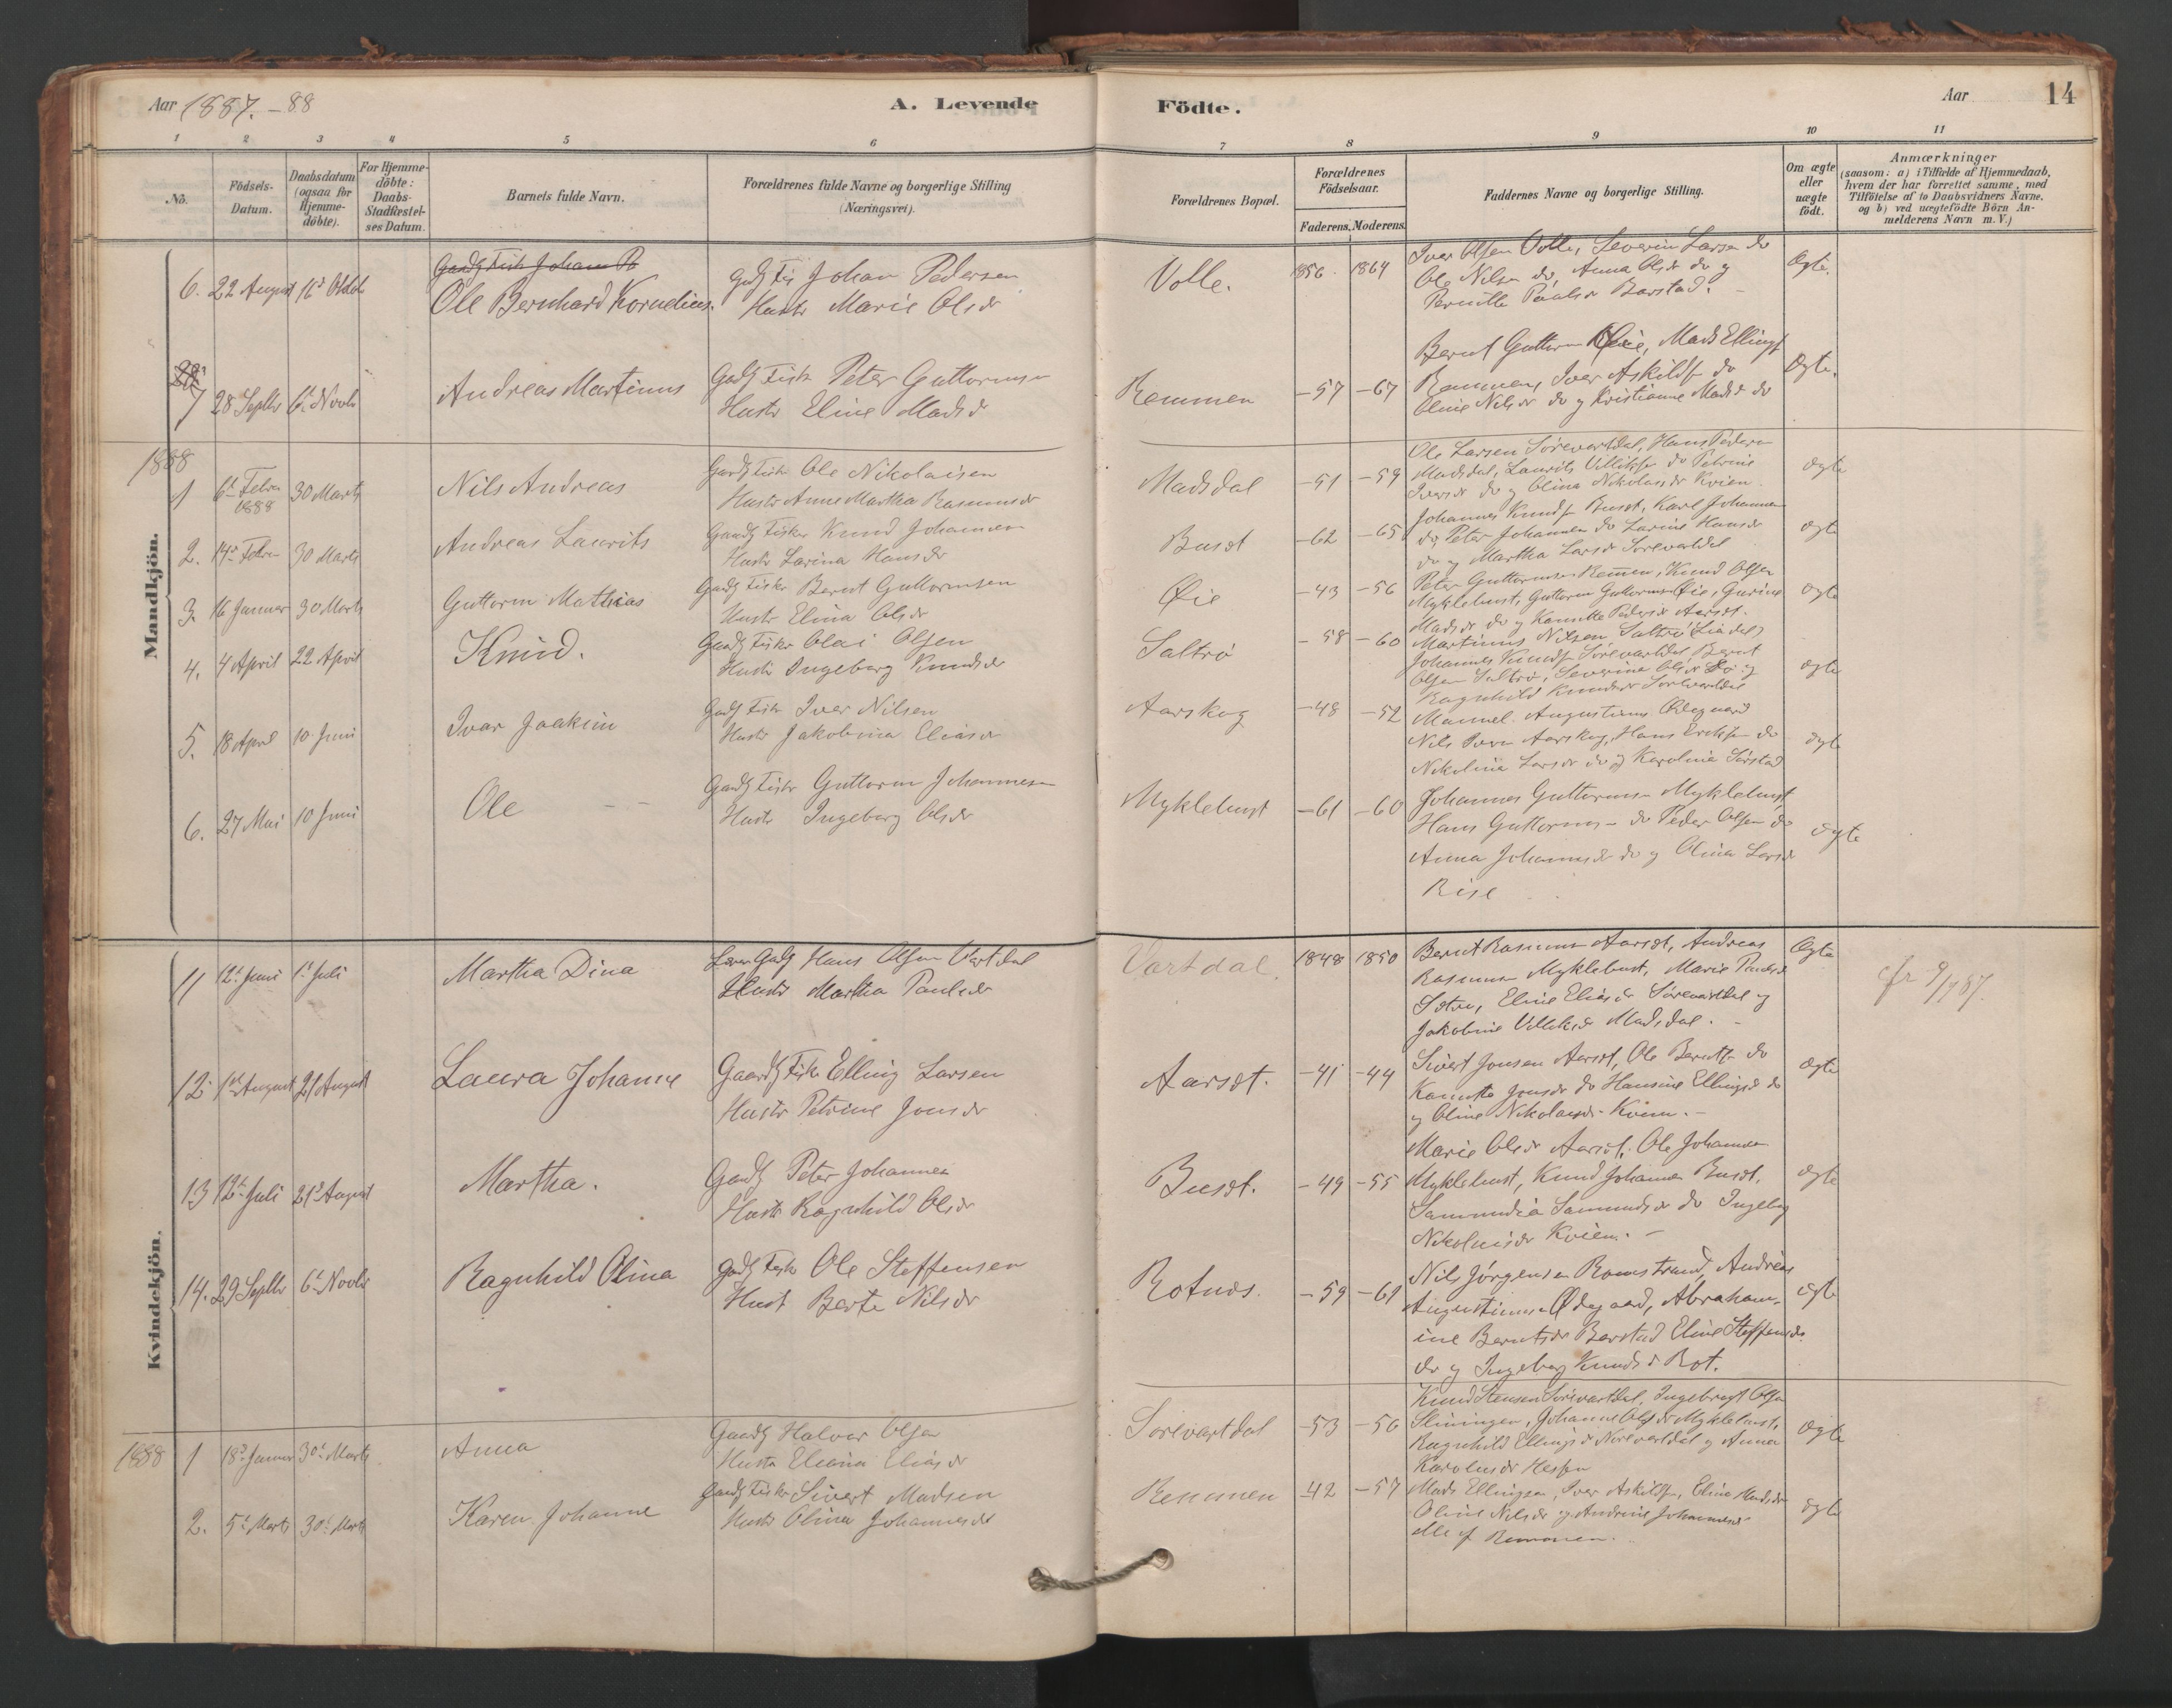 Aar 1887. - 88
A. Levende
Födte.
Aar
14
1 2 3 4 5 6 7 8 9 10 11
No.
Födsels-Datum.
Daabsdatum (ogsaa for Hjemme-döbte).
For Hjemme-döbte: Daabs-Stadfæstel-ses Datum.
Barnets fulde Navn.
Forældrenes fulde Navne og borgerlige Stilling (Næringsvei).
Forældrenes Bopæl.
Forældrenes Födselsaar.
Faderens. Moderens.
Faddernes Navne og borgerlige Stilling.
Om ægte eller uægte födt.
Anmærkninger (saasom: a) i Tilfælde af Hjemmedaab, hvem der har forrettet samme, med Tilföielse af to Daabsvidners Navne, og b) ved uægtefödte Börn An-melderens Navn m. V.)
Mandkjön.
6. 22 August 16 Oktob
Ole Bernhard Kornelius.
Johan Pedersen
Hustr Marie Olsdr
Volle. 1856. 1864
Iver Olsen Volle, Severin Larsen do
Ole Nilsen do, Anna Olsdr do og
Pernille Paulsdr Barstad.
Ægte.
7 28 Septbr 6t Novbr
Andreas Martinus
Gadbr Fisk Peter Guttormsen
Hustr Eline Madsdr
Remmen -57 -67
Bernt Guttorms Øie, Mads Ellings
Remmen, Iver Askilds do
Oline Nilsdr do og Kristianne Madsdr do
Ægte.
1888
1 6t Febru 1888 30 Marts
Nils Andreas
Gaardb Fisker Ole Nikolaisen
Hustr Anne Martha Rasmusdr
Madsdal -51 -59
Ole Larsen Sörevartdal, Hans Peders
Madsdal, Laurits Villiks do Petrine
Iversdr do og Olina Nikolaisdr Kvien.
Ægte
2. 14de Febru 30 Marts
Andreas Laurits
Gaardb Fisker Knud Johannes
Hustr Larina Hansdr
Buset -62 -65
Johannes Knuds Buset, Karl Johannes
do, Peter Johannes do Larine Hansdr
do og Martha Larsdr Sörevartdal
Ægte
3. 16 Januar 30 Marts
Guttorm Mathias
Gaardb Fisker Bernt Guttormsen
Hustr Elina Olsdr
Øie -43 -56
Peter Guttormsen Remen, Knud Olsen
Myklebust, Guttorm Guttormsen Øie, Gurine
Madsdr do og Kanutte Pedersdr Aarset.
Ægte
4. 4 April 22 April
Knud.
Gaardb Fisker Olai Olsen
Hustr Ingeborg Knudsdr
Saltrø -58 -60
Martinus Nilsen Saltrø
Johannes Knuds Sörevartdal, Bernt
Olsen Saltrø, Severine Olsdr do og
Ragnhild Knudsdr Sörevartdal
Ægte
5. 18 April 10 Juni
Ivar Joakim
Gaardb Fisker Iver Nilsen
Hustr Jakobina Eliasdr
Aarskog -48 -52
Manuel Augustinus Ødegaard
Nils Iversn Aarskog, Hans Eriks do
Nikoline Larsdr do og Karoline Sörstad
Ægte
6. 27 Mai 10 Juni
Ole
Gaardb Fisker Guttorm Johannesen
Hustr Ingeborg Olsdr
Myklebust -61 -60
Johannes Guttorms Myklebust
Hans Guttorms do Peder Olsen do
Anna Johannesdr do og Olina Larsdr
Rise
Ægte
Kvindekjön.
11 12t Juni 1t Juli
Martha Dina
Lærer Gadb Hans Olsen Vartdal
Hustr Martha Paulsdr
Vartdal. 1848 1850
Bernt Rasmus Aarset, Andreas
Rasmus Myklebust, Marie Paulsdr
Sætre, Eline Eliasdr Sörevartdal og
Jakobine Villiksdr Madsdal.
Ægte
cfr 9/7 87.
12. 1st August 21 August
Laura Johanne
Gaardb Fisker Elling Larsen
Hustr Petrine Jonsdr
Aarset. -41 -44
Sivert Jonsen Aarset, Ole Bernts do
Kanutte Jonsdr do Hansine Ellingsdr do
og Oline Nikolaisdr Kvien.
Ægte
13 12t Juli 21d August
Martha.
Gaardb Peter Johannes
Hustr Ragnhild Olsdr
Buset. -49 -55
Marie Olsdr Aarset, Ole Johannes
Myklebust, Knud Johannes Buset,
Samundia Samundsdr do Ingeborg
Nikolaisdr Kvien.
Ægte
14. 29 Septbr 6t Novbr
Ragnhild Olina
Gaardb Fisker Ole Steffensen
Hust Berte Nilsdr
Rotnes. -59 -61
Nils Jörgensen Romstrand, Andreas
Augustinus Ødegaard, Abraham-
ine Berntsdr Barstad Eline Steffensdr
do og Ingeborg Knudsdr Rot.
Ægte
1888 1 18d Januar 30t Marts
Anna
Gaardb Halvor Olsen
Hustr Eliana Eliasdr
Sörevartdal -53 -56
Knud Stensen Sörevartdal, Ingebrigt Olsen
Sluningen, Johanne Olsdr Myklebust,
Ragnhild Ellingsdr Nörevartdal og Anna
Karolusdr Hessen
Ægte
2. 5t Marts 30t Marts
Karen Johanne
Gaardb Fisker Sivert Madsen
Hustr Olina Johannesdr
Remmen -42 -57
Mads Ellingsen, Iver Askilds, Elina Madsdr
Oline Nilsdr og Andrine Johannesdr
alle af Remmen.
Ægte